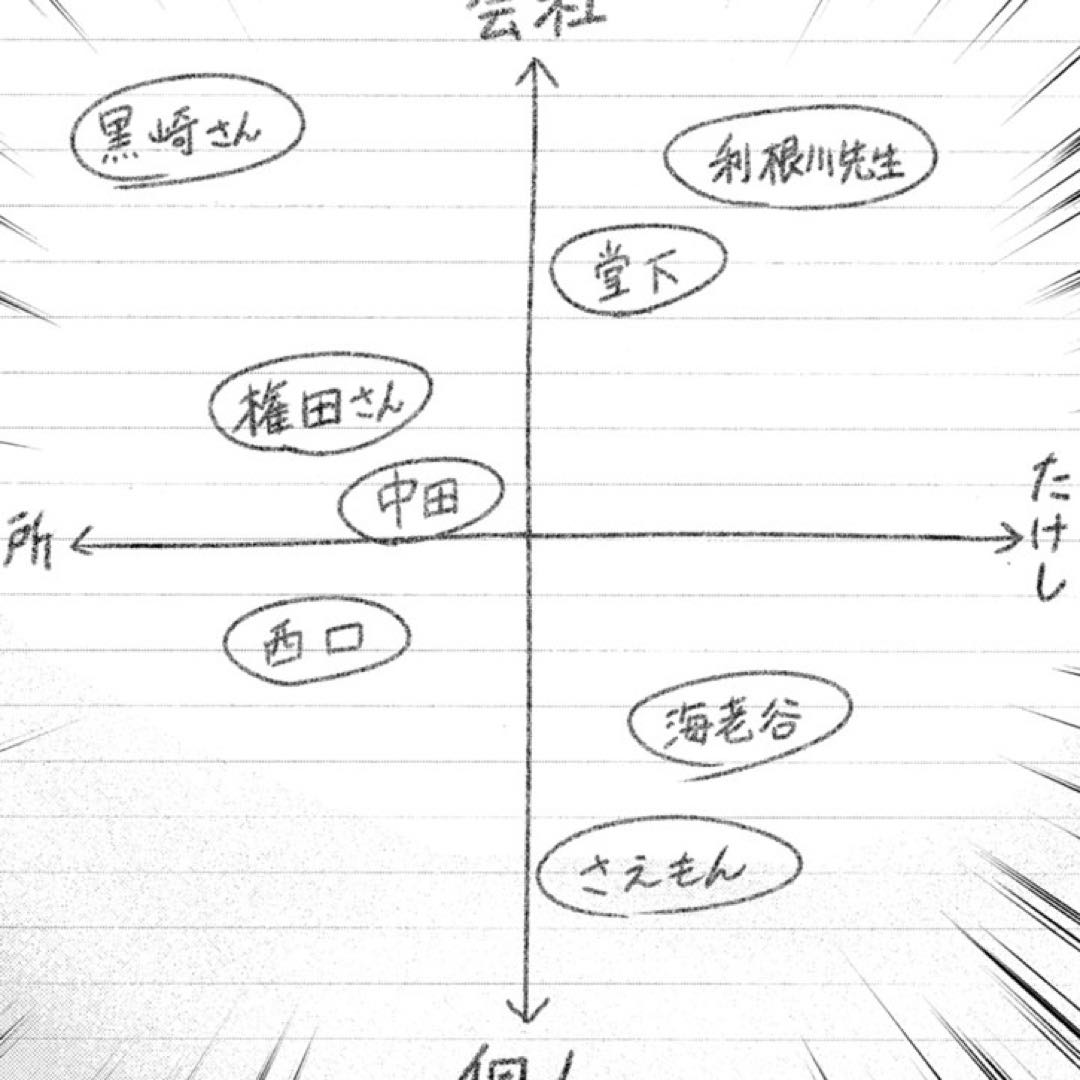 会社
黒崎さん
利根川先生
堂下
権田さん
中田
たけし
所
西口
海老谷
さえもん
個人